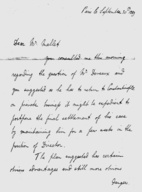 Dear Mr. Maillet
you consulted me this morning
regarding the position of Mr. and
you suggested as he has to return to Constantinople
on private business it might be expedient to
postpone the final settlement of his case
by maintaining him for a few weeks in the
position of Director.
The plan suggested has certain
obvious advantages and still more obvious
dangers